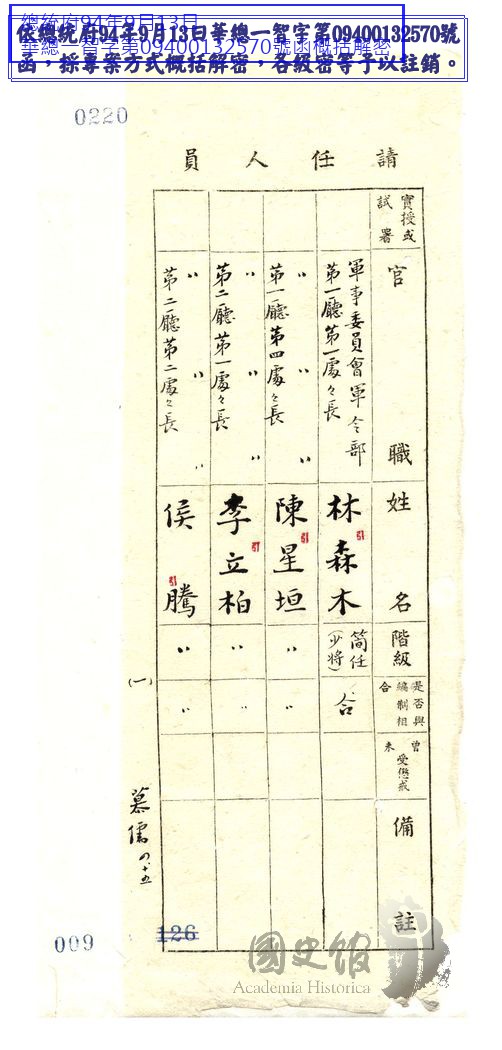 總統府94年9月13日
華總一智字第09400132570號函概括解密
依總統府94年9月13日華總一智字第09400132570號
函，採專案方式概括解密，各級密等予以註銷。
0220
請任人員
實授或試署
官職
姓名
階級
是否與編制相合
曾未受懲戒
備註
軍事委員會軍令部
第一廳第一處々長
林森木
簡任
(少將)
合
〃 〃 〃
第一廳第四處々長
陳星垣
〃
〃
〃 〃 〃
第二廳第一處々長
李立柏
〃
〃
〃 〃 〃
第二廳第二處々長
侯騰
〃
〃
(一)
慕儒
009
126
國史館
Academia Historica